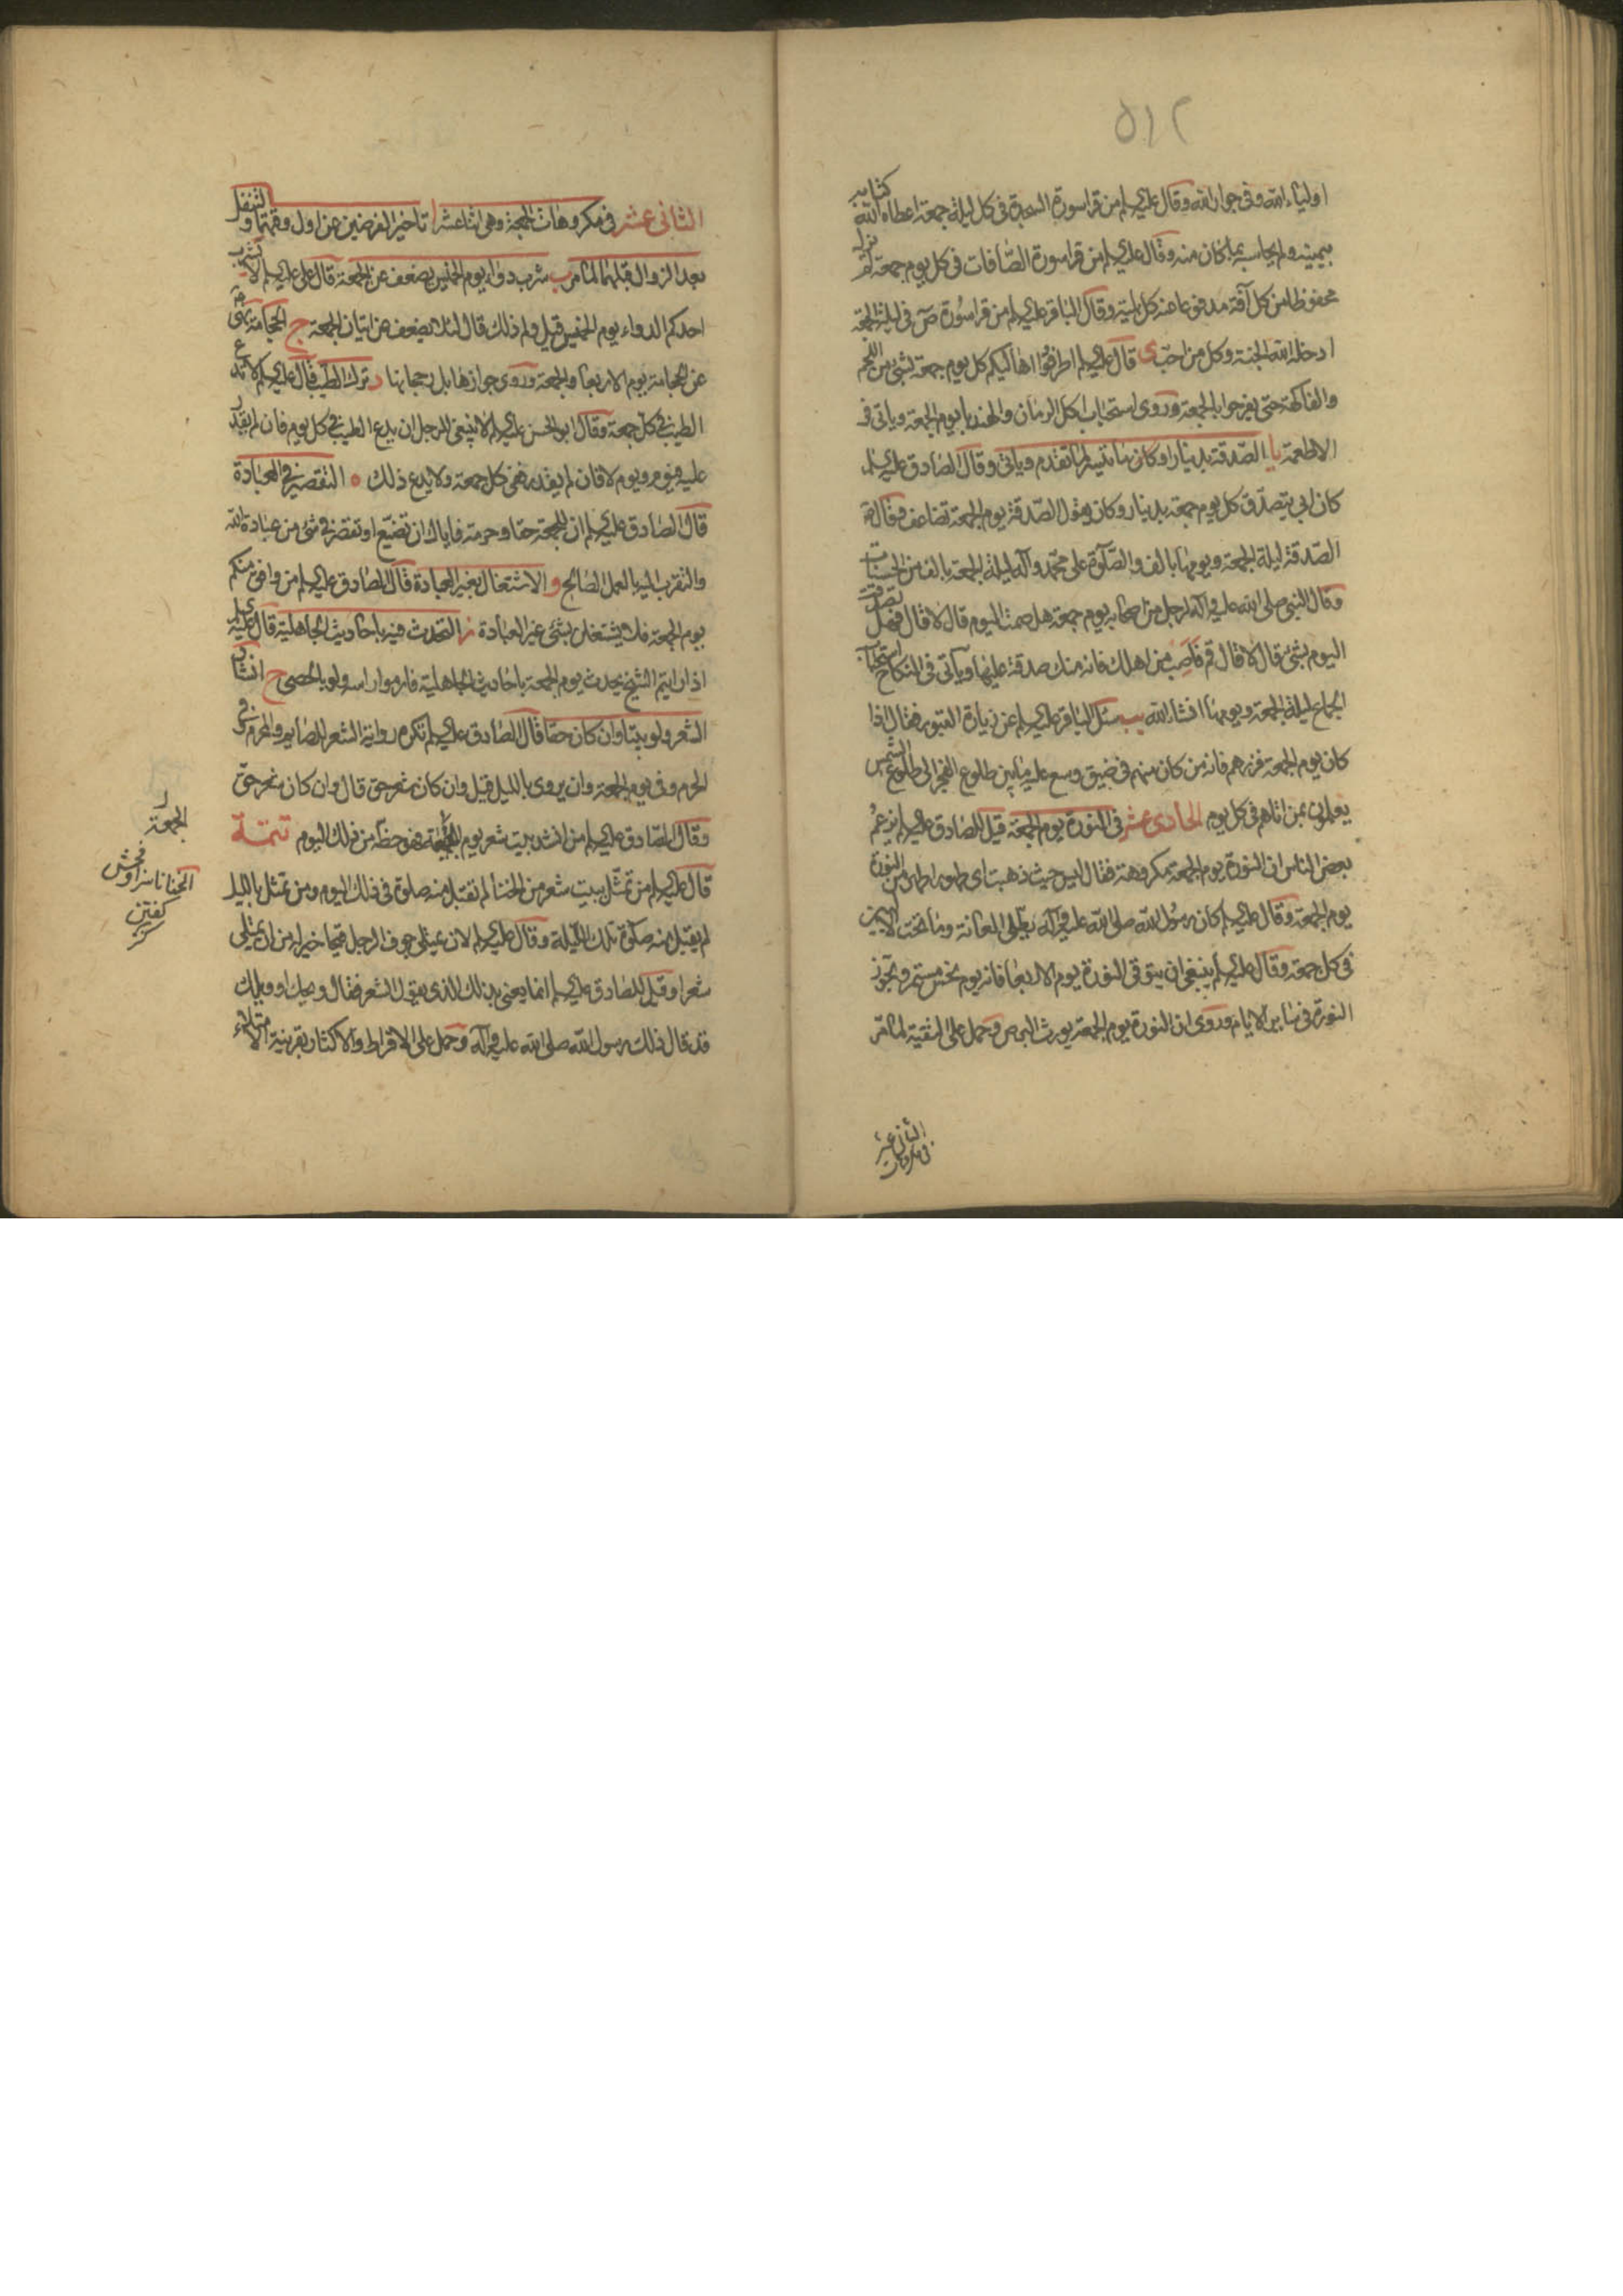 ٥١٢
اولياء الله وفى جوار الله وقال عليه السلم من قرا سورة السجدة فى كل ليلة جمعة اعطاه الله كتابه
بيمينه ولم يحاسبه بما كان منه وقال عليه السلم من قرا سورة الصافات فى كل يوم جمعة لم يزل
محفوظا من كل آفة مدفوعا عنه كل بلية وقال الباقر عليه السلم من قرا سورة ص فى ليلة الجمعة
ادخله الله الجنة وكل من احب ى قال عليه السلم اطرفوا اهاليكم كل يوم جمعة بشئ من اللحم
والفاكهة حتى يفرحوا بالجمعة وروى استحباب اكل الرمان والهندبا يوم الجمعة وياتى فى
الاطعمة يا الصدقة بدينار او كان ما تيسر لما تقدم وياتى وقال الصادق عليه السلم
كان ابى يتصدق كل يوم جمعة بدينار وكان يقول الصدقة يوم الجمعة تضاعف وقال
الصدقة ليلة الجمعة ويومها بالف والصلوة على محمد وآله ليلة الجمعة بالف من الحسنات
وقال النبى صلى الله عليه وآله لرجل من اصحابه يوم جمعة هل صمت اليوم قال لا قال فهل تصدقت
اليوم بشئ قال لا قال قم فاصب من اهلك فانه منك صدقة عليها وياتى فى النكاح استحباب
الجماع ليلة الجمعة ويومها انشاء الله يب سئل الباقر عليه السلم عن زيارة القبور فقال اذا
كان يوم الجمعة فزرهم فانه من كان منهم فى ضيق وسع عليه ما بين طلوع الفجر الى طلوع الشمس
يعلمون بمن اتاهم فى كل يوم الحادى عشر فى النورة يوم الجمعة قيل للصادق عليه السلم يزعم
بعض الناس ان النورة يوم الجمعة مكروهة فقال ليس حيث ذهبت اى طهور اطهر من النورة
يوم الجمعة وقال عليه السلم كان رسول الله صلى الله عليه وآله يطلى العانة وما تحت الاليين
فى كل جمعة وقال عليه السلم ينبغى ان يتوقى النورة يوم الاربعا فانه يوم نحس مستمر وتجوز
النورة فى سائر الايام وروى ان النورة يوم الجمعة يورث البرص وحمل على التقية لما مر
الثانى عشر
فى مكروهات
الثانى عشر فى مكروهات الجمعة وهى اثنا عشر ا تاخير الفرضين عن اول وقتهما والتنفل
بعد الزوال قبلهما لما مر ب شرب دواء يوم الخميس يضعف عن الجمعة قال على عليه السلم لا يشرب
احدكم الدواء يوم الخميس قيل ولم ذلك قال لئلا يضعف عن اتيان الجمعة ج الحجامة نهى
عن الحجامة يوم الاربعا والجمعة وروى جوازها بل رجحانها د ترك الطيب قال عليه السلم لا تدع
الطيب فى كل جمعة وقال ابو الحسن عليه السلم لا ينبغى للرجل ان يدع الطيب فى كل يوم فان لم يقدر
عليه فيوم ويوم لا فان لم يقدر ففى كل جمعة ولا يدع ذلك ه التقصير فى العبادة
قال الصادق عليه السلم ان للجمعة حقا وحرمة فاياك ان تضيع او تقصر فى شئ من عبادة الله
والتقرب اليه بالعمل الصالح و الاشتغال بغير العبادة قال الصادق عليه السلم من وافق منكم
يوم الجمعة فلا يشتغلن بشئ غير العبادة ز التحدث فيه باحاديث الجاهلية قال عليه السلم
اذا رايتم الشيخ يحدث يوم الجمعة باحاديث الجاهلية فارموا راسه ولو بالحصى ح انشاد
الشعر ولو بيتا وان كان حقا قال الصادق عليه السلم تكره رواية الشعر للصايم والمحرم وفى
الحرم وفى يوم الجمعة وان يروى بالليل قيل وان كان شعر حق قال وان كان شعر حق
وقال الصادق عليه السلم من انشد بيت شعر يوم الجمعة فهو حظه من ذلك اليوم تتمة
قال عليه السلم من تمثل ببيت شعر من الخنا لم تقبل منه صلوة فى ذلك اليوم ومن تمثل بالليل
لم يقبل منه صلوة تلك الليلة وقال عليه السلم لان يمتلى جوف الرجل قيحا خير له من ان يمتلى
شعرا وقيل للصادق عليه السلم انما يعنى بذلك الذى يقول الشعر فقال ويحك او ويلك
قد قال ذلك رسول الله صلى الله عليه وآله وحمل على الافراط والاكثار بقرينة الامتلاء
الجمعة
الخنا ناسزا وفحش
كفتن
كنز